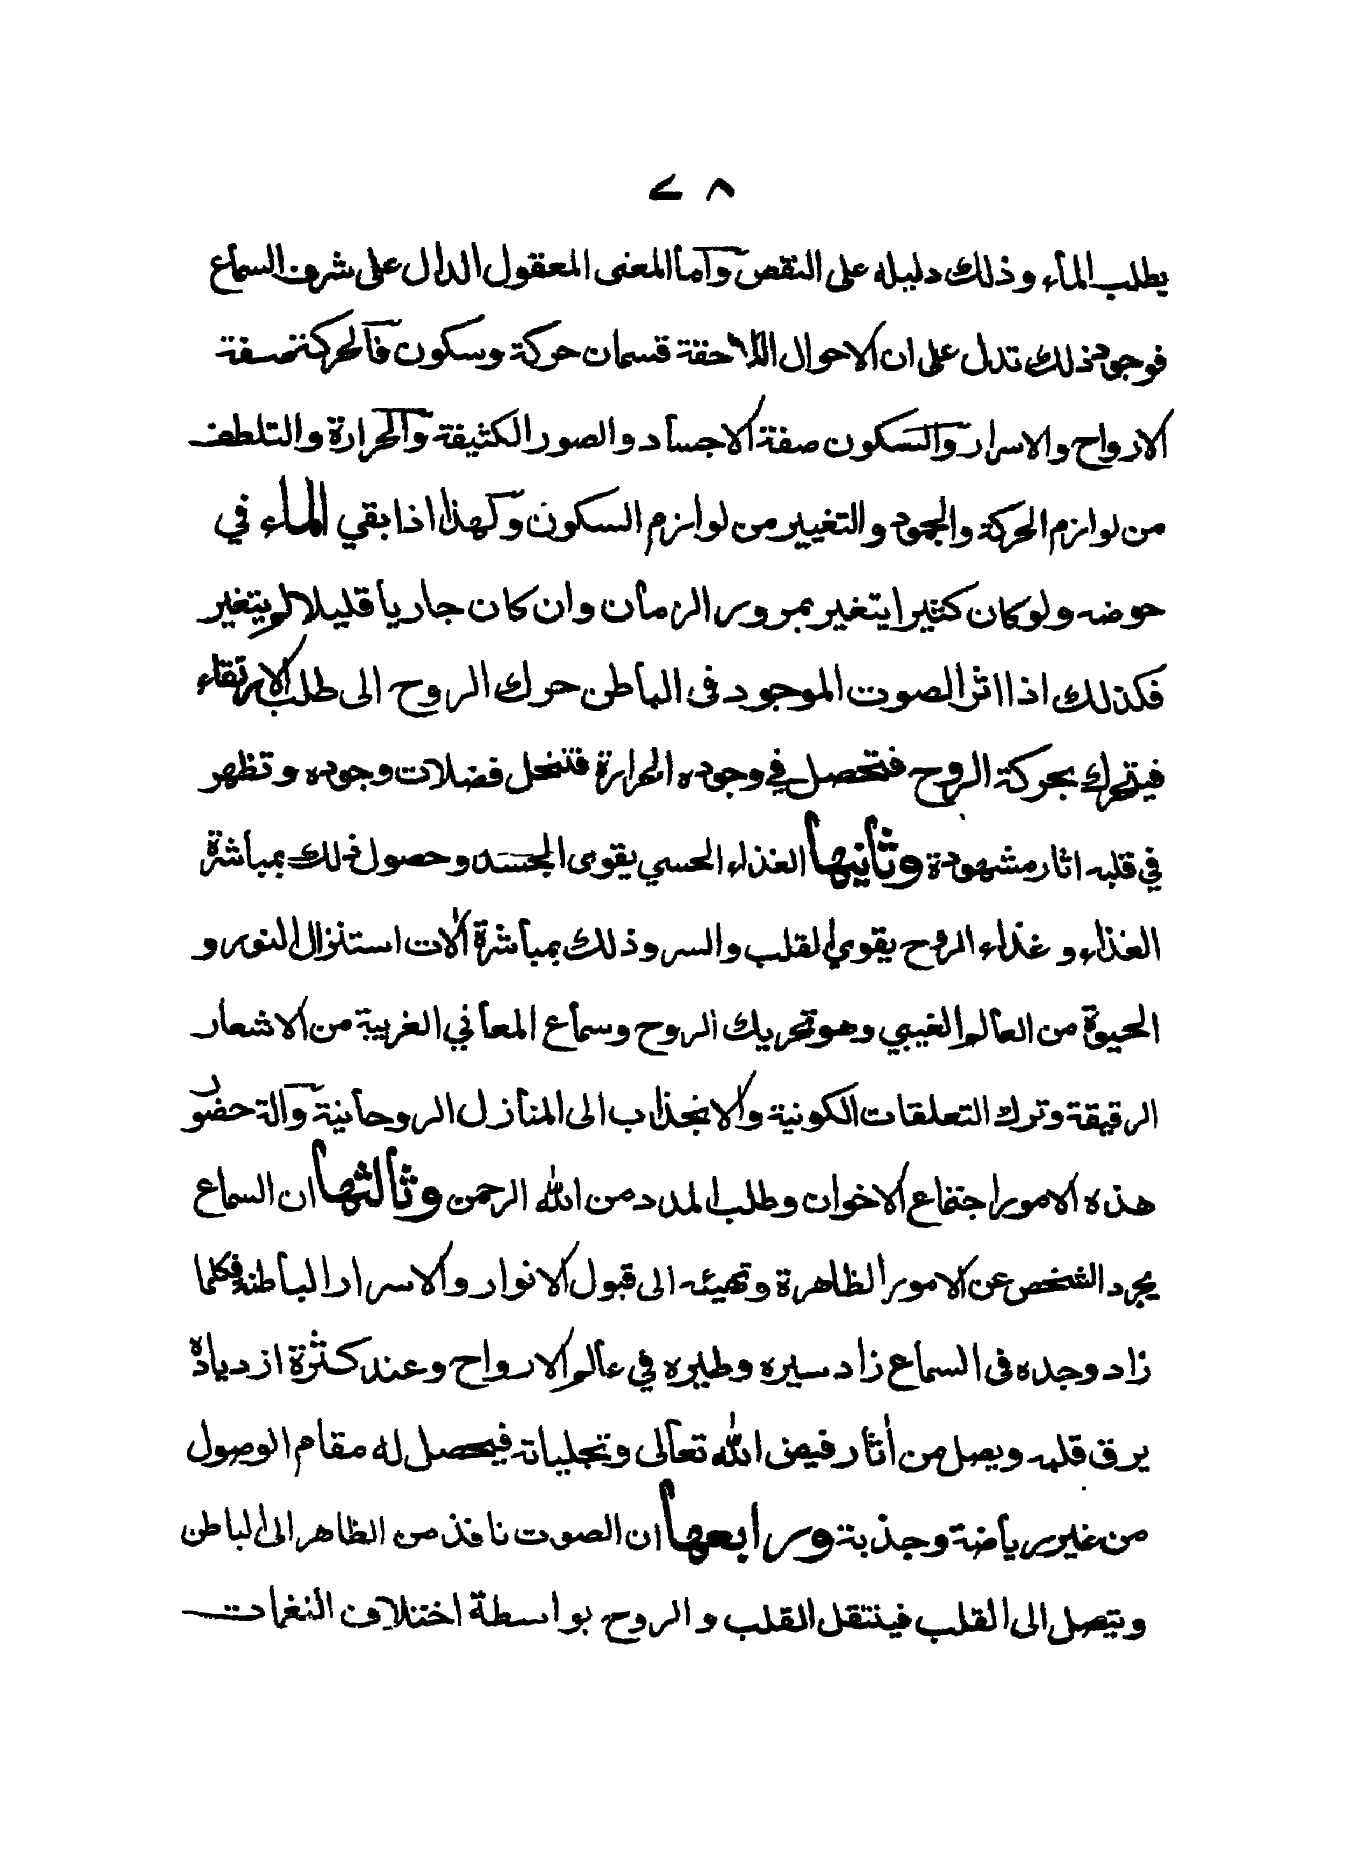 ٧٨
يطلب الماء وذلك دليله على النقص وأما المعنى المعقول الدال على شرف السماع
فوجود ذلك تدل على ان الاحوال اللاحقة قسمان حركة وسكون فالحركة صفة
الارواح والاسرار والسكون صفة الاجساد والصور الكثيفة والحرارة والتلطف
من لوازم الحركة والجمود والتغيير من لوازم السكون ولهذا اذا بقي الماء في
حوضه ولو كان كثيرا يتغير بمرور الزمان وان كان جاريا قليلا لم يتغير
فكذلك اذا اثر الصوت الموجود فى الباطن حرك الروح الى طلب الارتقاء
فيتحرك بحركة الروح فتحصل في وجوده الحرارة فتنحل فضلات وجوده وتظهر
في قلبه اثار مشهودة وثانيها الغذاء الحسي يقوى الجسد وحصول ذلك بمباشرة
الغذاء وغذاء الروح يقوي القلب والسر وذلك بمباشرة ألات استنزال النور و
الحيوة من العالم الغيبي وهو تحريك الروح وسماع المعاني الغريبة من الاشعار
الرقيقة وترك التعلقات الكونية والانجذاب الى المنازل الروحانية وآلة حضور
هذه الامور اجتماع الاخوان وطلب المدد من الله الرحمن وثالثها ان السماع
يجرد الشخص عن الامور الظاهرة وتهيئه الى قبول الانوار والاسرار الباطنه فكلما
زاد وجده فى السماع زاد سيره وطيره في عالم الارواح وعند كثرة ازدياده
يرق قلبه ويصل من أثار فيض الله تعالى وتجلياته فيحصل له مقام الوصول
من غير رياضة وجذبة ورابعها ان الصوت نافذ من الظاهر الى الباطن
ويتصل الى القلب فينتقل القلب والروح بواسطة اختلاف النغمات